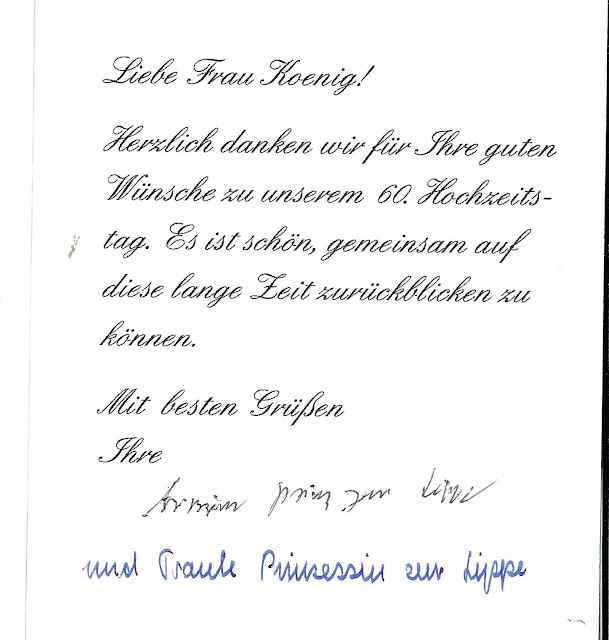 Liebe Frau Koenig!
Herzlich danken wir für Ihre guten
Wünsche zu unserem 60. Hochzeits-
tag. Es ist schön, gemeinsam auf
diese lange Zeit zurückblicken zu
können.
Mit besten Grüßen
Ihre
Armin Prinz zur Lippe
und Traute Prinzessin zur Lippe